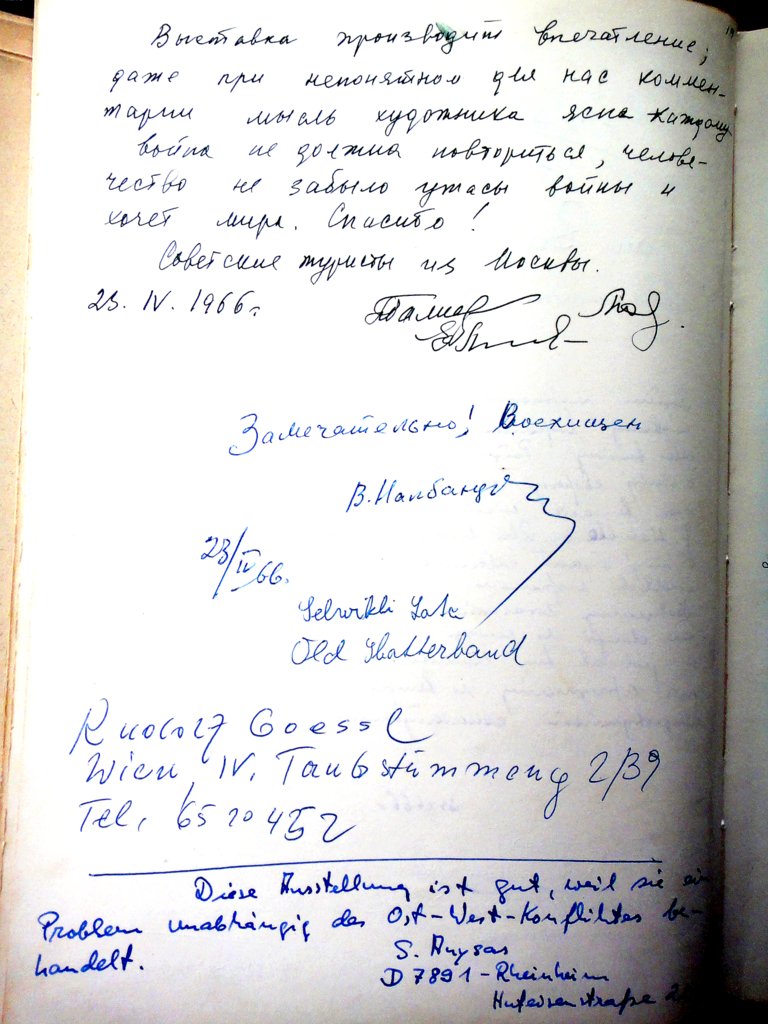 Выставка производит впечатление;
даже при непонятном для нас коммен-
тарии мысль художника ясна каждому
война не должна повториться, челове-
чество не забыло ужасы войны и
хочет мира. Спасибо!
Советские туристы из Москвы.
23. IV. 1966г.
Замечательно! Восхищен
23/IV 66.
Old
Rudolf Goessl
Wien, IV, Taubstummeng 2/39
Tel. 65 20 452
Diese Ausstellung ist gut, weil sie ein
Problem unabhängig des Ost-West-Konfliktes be-
handelt.
S.
D 7891 - Rheinheim
Hufeisenstraße